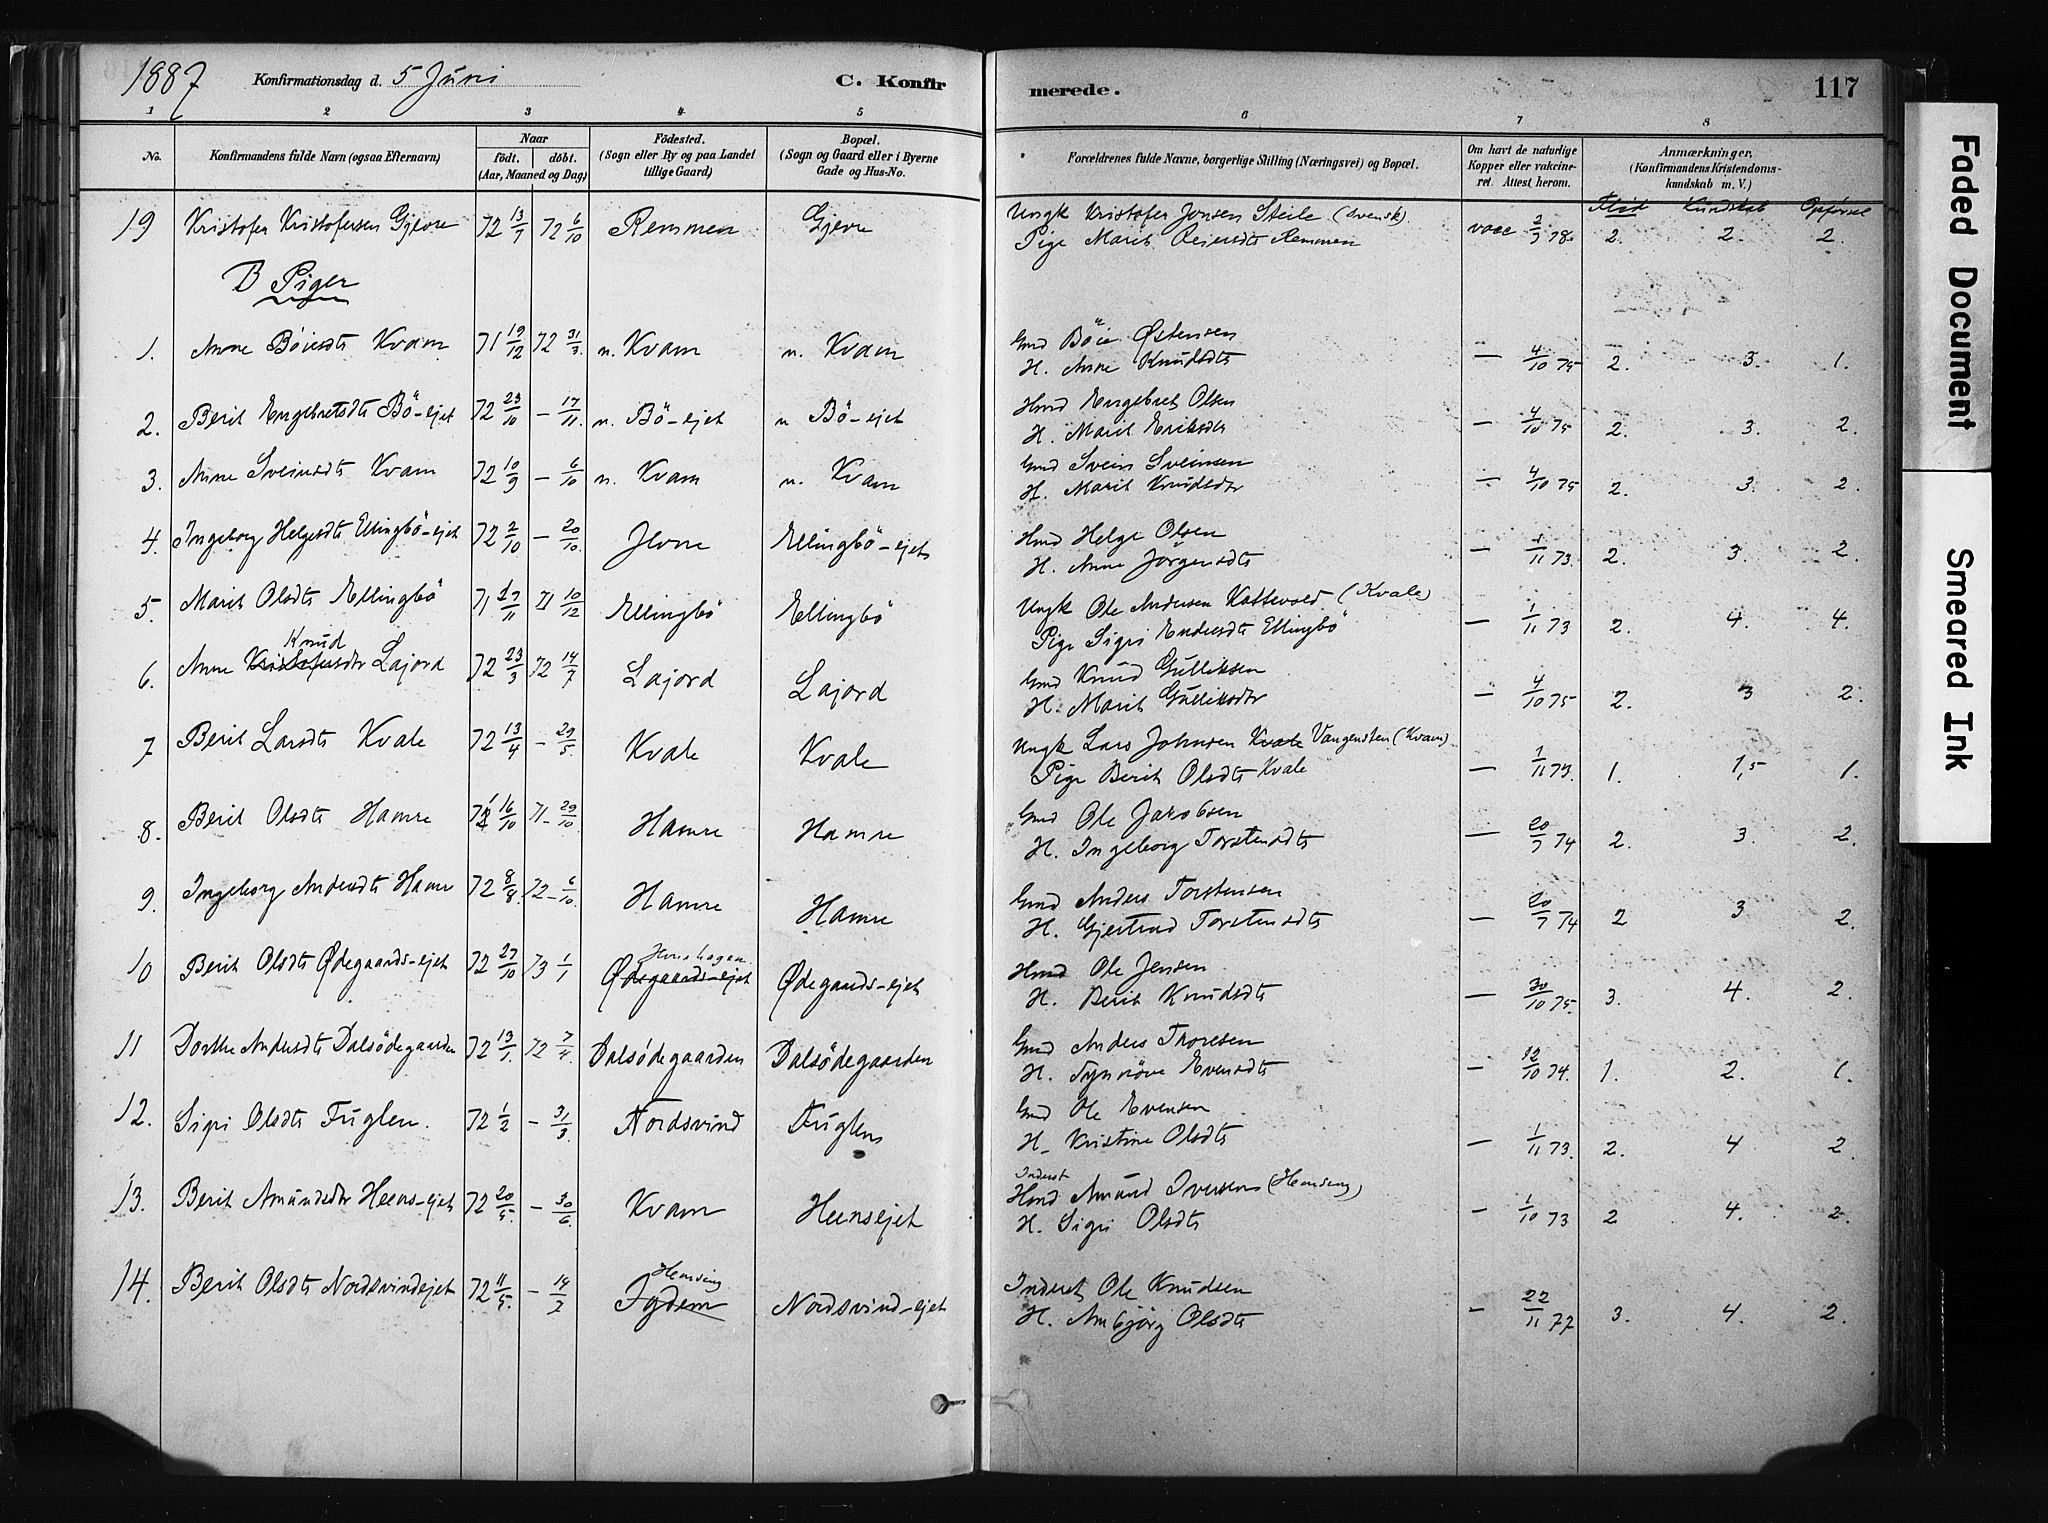 1887 Konfirmationsdag d. 5 Juni C. Konfirmerede. 117
1 2 3 4 5 6 7 8
No. Konfirmandens fulde Navn (ogsaa Efternavn) Naar födt. döbt. (Aar, Maaned og Dag) Födested. (Sogn eller By og paa Landet tillige Gaard) Bopæl. (Sogn og Gaard eller i Byerne Gade og Hus-No. Forældrenes fulde Navne, borgerlige Stilling (Næringsvei) og Bopæl. Om havt de naturlige Kopper eller vakcineret. Attest herom. Anmærkninger. (Konfirmandens Kristendomskundskab m. V.)
Flid Kundskab Opførsel
19 Kristofer Kristofersen Gjevre 72 13/7 72 6/10 Remmen Gjevre Ungk Kristofer Jonsen Steile (Svensk) vacc 78. 2. 2. 2.
Pige Marit Remmen
B Piger
1. Anne Böiesdtr Kvam 71 19/12 72 31/3 n. Kvam n. Kvam Gmd Böie Østensen
H. Anne Knudsdtr — 4/10 75 2. 3. 1.
2. Berit Engebretsdtr Bö-ejet 72 23/10 — 17/11. n. Bö-ejet n Bö-ejet Hmd Engebret Olsen
H. Marit Eriksdtr — 4/10 75 2. 3. 2.
3. Anne Sveinsdtr Kvam 72 10/9 — 6/10 n. Kvam n. Kvam Gmd Svein Sveinsen
H. Marit Knudsdtr — 4/10 75 2. 3. 2.
4. Ingeborg Helgesdtr Ellingbö-ejet 72 2/10 — 20/10. Jevne Ellingbö-ejet Hmd Helge Olsen
H. Anne Jörgensdtr — 1/11 73. 2. 3. 2
5. Marit Olsdtr Ellingbö 71 27/11 71 10/12 Ellingbö Ellingbö Ungk Ole Andersen Kattevold (Kvale)
Pige Sigri Endresdtr Ellingbö — 1/11 73 2. 4. 4.
6. Anne Kristofersdtr Knud Lajord 72 23/3 72 14/7 Lajord Lajord Gmd Knud Gulliksen
H. Marit Gulliksdtr — 4/10 75 2. 3 2.
7 Berit Larsdtr Kvale 72 13/4 — 29/5. Kvale Kvale Ungk Lars Johnsen Kvale Vangensten (Kvam)
Pige Berit Olsdtr Kvale — 1/11 73. 1. 1,5 1.
8. Berit Olsdtr Hamre 71 16/10 71 29/10. Hamre Hamre Gmd Ole Jakobsen
H. Ingeborg Torstensdtr — 20/7 74 2. 3. 2.
9. Ingeborg Andersdtr Hamre 72 8/8. 72 — 6/10. Hamre Hamre Gmd Anders Torstensen
H. Gjertrud Torstensdtr — 20/7 74 2 3 2.
10 Berit Olsdtr Ødegaards-ejet 72 27/10 73 1/1 Ødegaards-ejet Ødegaards-ejet Hmd Ole Jensen
H. Berit Knudsdtr — 30/10 75. 3. 4. 2.
11 Dorthe Andersdtr Dalsödegaarden 72 13/1. 72 7/4. Dalsödegaarden Dalsödegaarden Gmd Anders Thoresen
H. Synnöve Evensdtr — 12/10 74. 1. 2. 1.
12. Sigri Olsdtr Fuglen. 72 1/2 — 31/3 Nordsvind Fuglen Gmd Ole Evensen
H. Kristine Olsdtr — 1/11 73. 2. 4 2.
13. Berit Amundsdtr Heens-ejet 72 20/5. — 30/6. Kvam Heensejet Inderst Hmd Amund Iversen (Hensing)
H. Sigri Olsdtr — 1/10 73 2 4. 2.
14. Berit Olsdtr Nordsvindejet 72 11/5. — 14/7 Hensing Nordsvind-ejet Inderst Ole Knudsen
H. Ambjörg Olsdtr — 22/11 77 3. 4. 2.
Faded Document
Smeared Ink